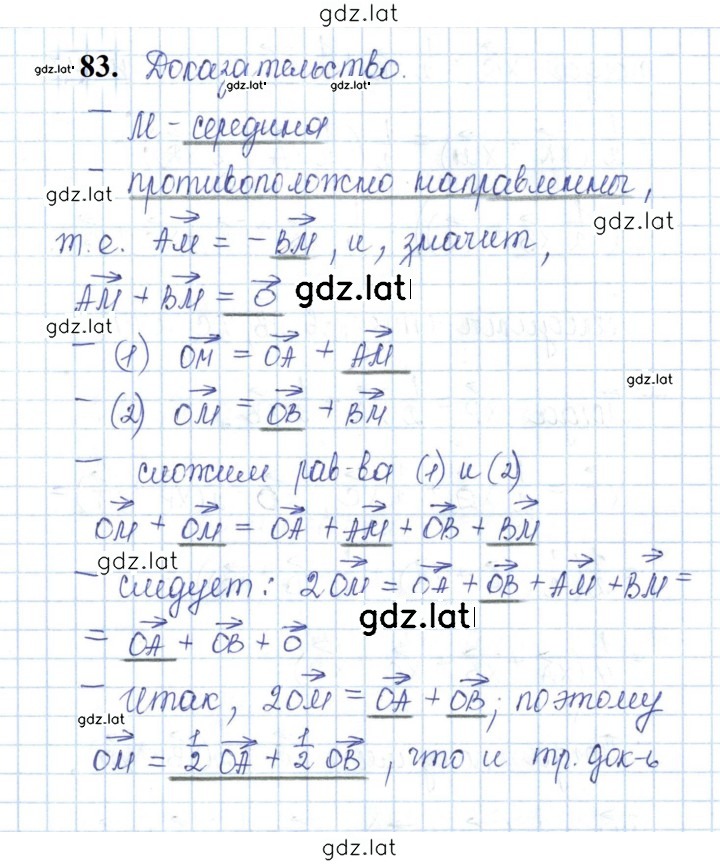 gdz.lat
gdz.lat 83. Доказательство.
gdz.lat gdz.lat
— М - середина
— противоположно направлены,
gdz.lat
gdz.lat
т.е. AM = - BM, и, значит,
AM + BM = 0 gdz.lat
gdz.lat
— (1) OM = OA + AM
gdz.lat
— (2) OM = OB + BM
— сложим рав-ва (1) и (2)
OM + OM = OA + AM + OB + BM
gdz.lat
— следует: 2OM = OA + OB + AM + BM =
gdz.lat
= OA + OB + 0
— Итак, 2OM = OA + OB; поэтому
gdz.lat
OM = 1/2 OA + 1/2 OB, что и тр. док-ь
gdz.lat